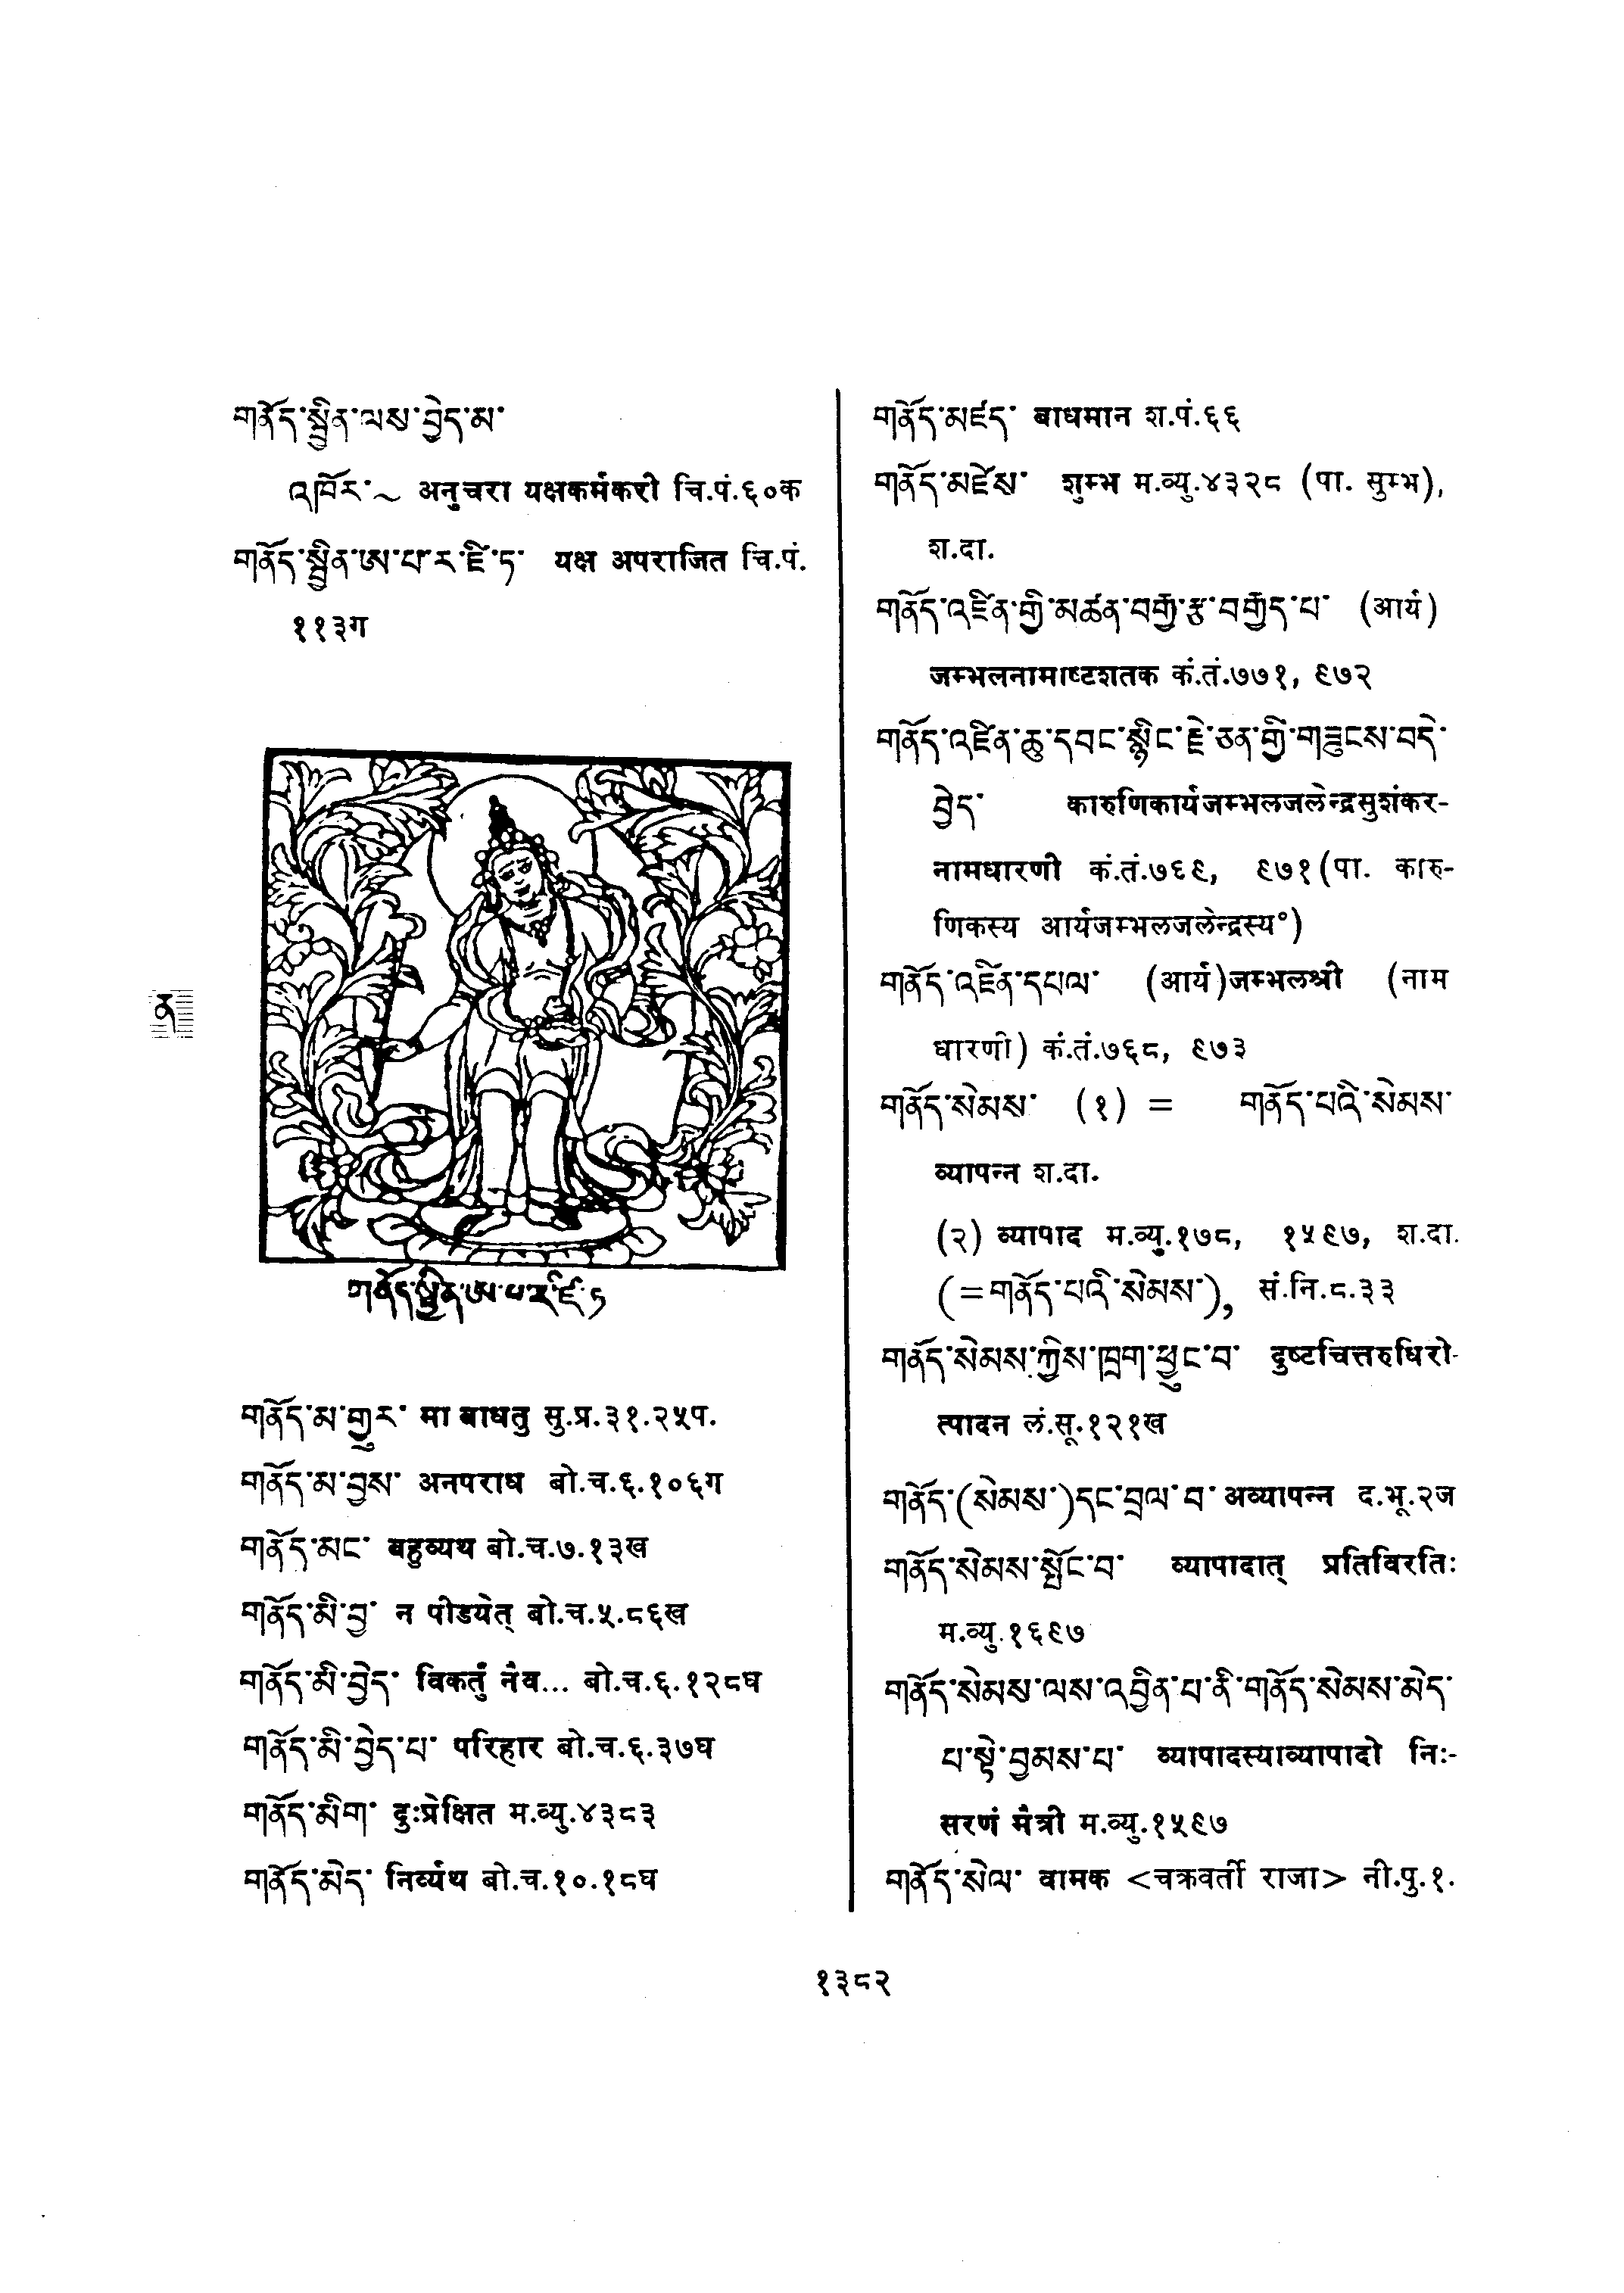 གནོད་སྦྱིན་ལས་བྱེད་མ་
འཁོར་~ अनुचरा यक्षकर्मकरी चि.पं.६०क
གནོད་སྦྱིན་ཨ་པ་ར་ཛི་ཏ་ यक्ष अपराजित चि.पं.
११३ग
གནོད་སྦྱིན་ཨ་པ་ར་ཛི་ཏ
གནོད་མ་གྱུར་ मा बाधतु सु.प्र.३१.२५प.
གནོད་མ་བྱས་ अनपराध बो.च.६.१०६ग
གནོད་མང་ बहुव्यथ बो.च.७.१३ख
གནོད་མི་བྱ་ न पीडयेत् बो.च.५.८६ख
གནོད་མི་བྱེད་ विकर्तुं नैव... बो.च.६.१२८घ
གནོད་མི་བྱེད་པ་ परिहार बो.च.६.३७घ
གནོད་མིག་ दुःप्रेक्षित म.व्यु.४३८३
གནོད་མེད་ निर्व्यथ बो.च.१०.१८घ
ན
གནོད་མཛད་ बाधमान श.पं.६६
གནོད་མཛེས་ शुम्भ म.व्यु.४३२८ (पा. सुम्भ),
श.दा.
གནོད་འཛིན་གྱི་མཚན་བརྒྱ་རྩ་བརྒྱད་པ་ (आर्य)
जम्भलनामाष्टशतक कं.तं.७७१, ९७२
གནོད་འཛིན་ཆུ་དབང་སྙིང་རྗེ་ཅན་གྱི་གཟུངས་བདེ་
བྱེད་ कारुणिकार्यजम्भलजलेन्द्रसुशंकर-
नामधारणी कं.तं.७६९, ९७१(पा. कारु-
णिकस्य आर्यजम्भलजलेन्द्रस्य°)
གནོད་འཛིན་དཔལ་ (आर्य)जम्भलश्री (नाम
धारणी) कं.तं.७६८, ९७३
གནོད་སེམས་ (१) = གནོད་པའི་སེམས་
व्यापन्न श.दा.
(२) व्यापाद म.व्यु.१७८, १५९७, श.दा.
(=གནོད་པའི་སེམས་), सं.नि.८.३३
གནོད་སེམས་ཀྱིས་ཁྲག་ཕྱུང་བ་ दुष्टचित्तरुधिरो-
त्पादन लं.सू.१२१ख
གནོད་(སེམས་)དང་བྲལ་བ་ अव्यापन्न द.भू.२ज
གནོད་སེམས་སྤོང་བ་ व्यापादात् प्रतिविरतिः
म.व्यु.१६९७
གནོད་སེམས་ལས་འབྱིན་པ་ནི་གནོད་སེམས་མེད་
པ་སྟེ་བྱམས་པ་ व्यापादस्याव्यापादो निः-
सरणं मैत्री म.व्यु.१५९७
གནོད་སེལ་ वामक <चक्रवर्ती राजा> नी.पु.१.
१३८२